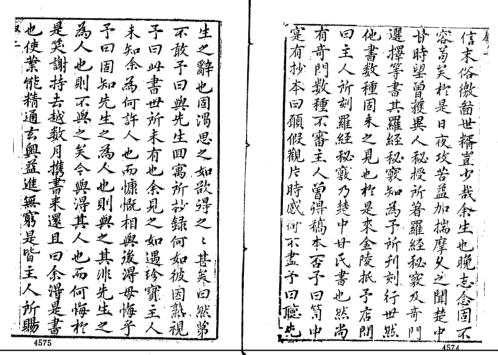 信末俗徼翻世稱豈少哉余生也晚志念固不
容苟矣於是日夜攻苦益加揣摩久之聞楚中
甘時望曾獲異人秘授所著羅經秘竅及奇門
選擇等書其羅經秘竅知為予所刊刻行世然
他書數種固未之見也於是來金陵抵予店問
曰主人所刻羅經秘竅乃楚中甘氏書也然尚
有奇門數種不審主人曾得稿本否予曰笥中
寔有抄本曰願假觀片時感何不盡予曰聽先
生之辭也固渴思之如欲得之之甚矣曰然第
不敢予曰與先生回寓所抄錄何如彼因熟視
予曰此書世所未有也余見之如遇珍寶主人
未知余為何許人也而慷慨相與後得毋悔乎
予曰固知先生之為人也則與之其非先生之
為人也則不與之矣今與得其人也而何悔於
是笑謝持去越数月携書來還且曰余滑是書
也使業能精通玄奥益進無窮是皆主人所賜
4575
4574